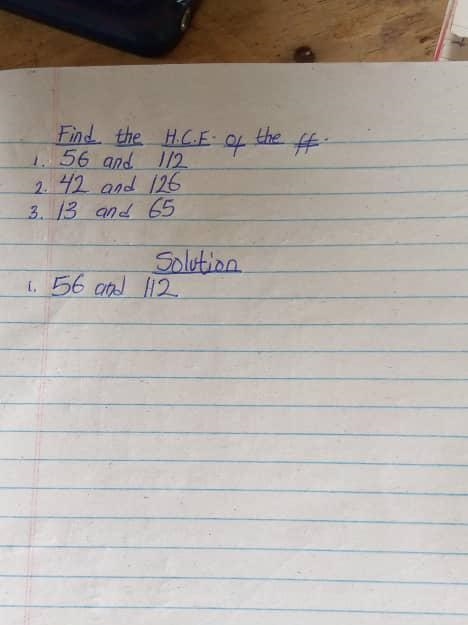 Find the H.C.F. of the ff.
1. 56 and 112
2. 42 and 126
3. 13 and 65
Solution
1. 56 and 112